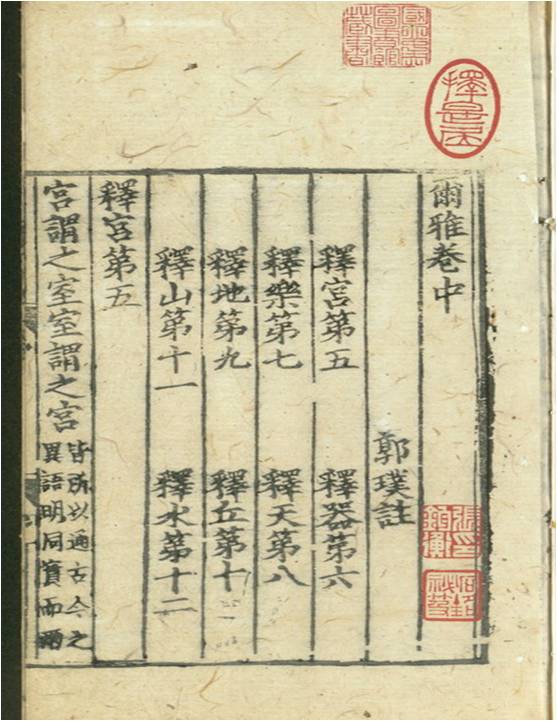 爾雅卷中
郭璞註
釋宮第五 釋器第六
釋樂第七 釋天第八
釋地第九 釋丘第十
釋山第十一 釋水第十二
釋宮第五
宮謂之室室謂之宮
皆所以通古今之
異語明同實而兩
擇是居